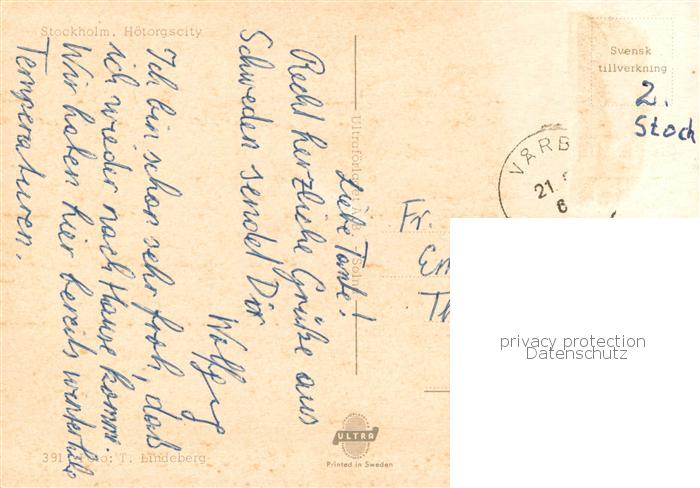 Stockholm. Hötorgscity
Liebe Tante!
Recht herzliche Grüße aus
Schweden sendet Dir
Wolfgang
Ich bin schon sehr froh, daß
ich wieder nach Hause komm.
Wir haben hier bereits winterliche
Temperaturen.
391 Foto: T. Lindeberg
Ultraförlaget A.B. - Solna
ULTRA
Printed in Sweden
Svensk
tillverkning
2.
Stock
VARB
21.
6
Fr.
privacy protection
Datenschutz